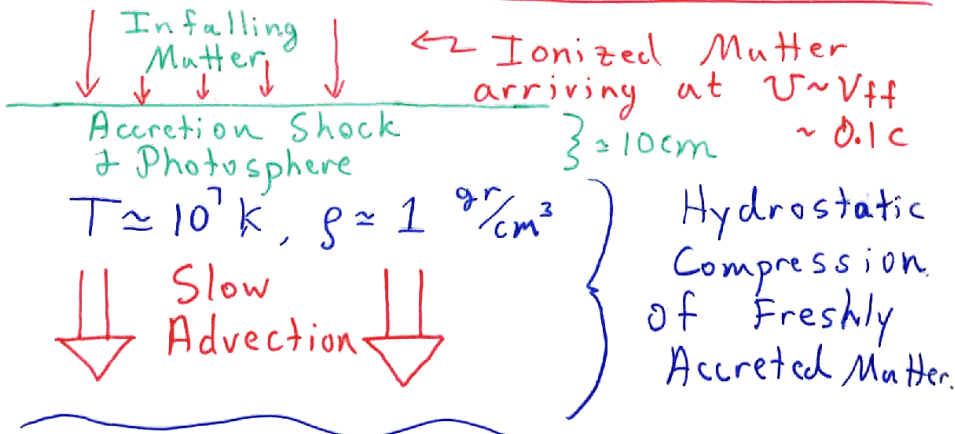 Infalling
Matter
← Ionized Matter
arriving at v~Vff
~ 0.1c
Accretion Shock
& Photosphere
} ≈ 10cm
T ≃ 10⁷ K, ρ ≈ 1 gr/cm³
Slow
Advection
Hydrostatic
Compression
of Freshly
Accreted Matter.